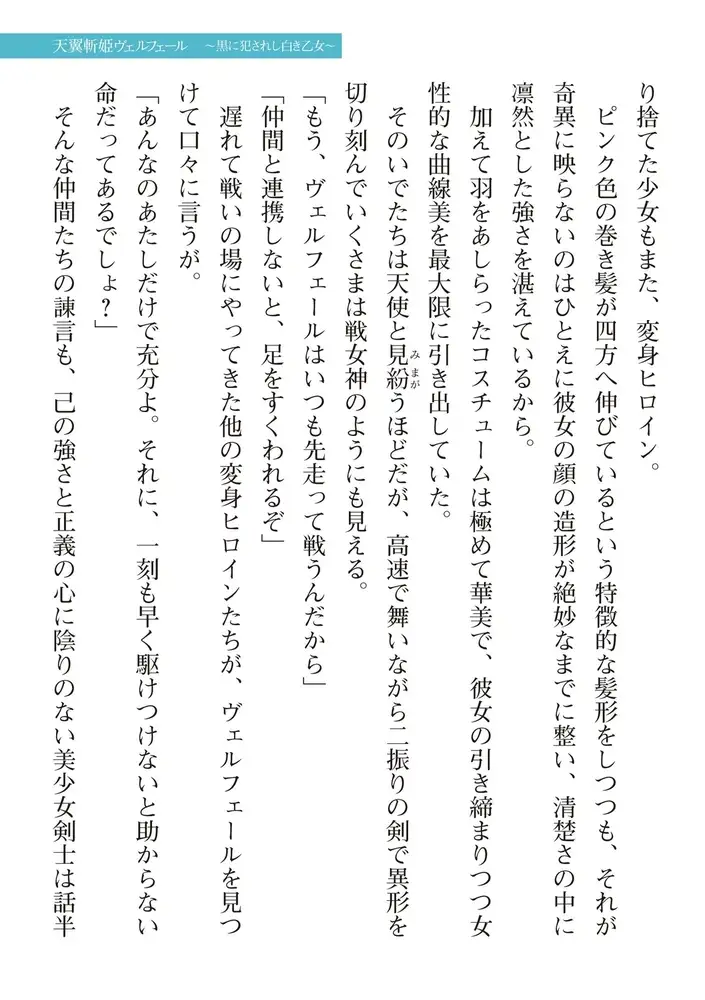 天翼斬姫ヴェルフェール　～黒に犯されし白き乙女～
り捨てた少女もまた、変身ヒロイン。
ピンク色の巻き髪が四方へ伸びているという特徴的な髪形をしつつも、それが
奇異に映らないのはひとえに彼女の顔の造形が絶妙なまでに整い、清楚さの中に
凛然とした強さを湛えているから。
加えて羽をあしらったコスチュームは極めて華美で、彼女の引き締まりつつ女
性的な曲線美を最大限に引き出していた。
そのいでたちは天使と見紛うほどだが、高速で舞いながら二振りの剣で異形を
切り刻んでいくさまは戦女神のようにも見える。
「もう、ヴェルフェールはいつも先走って戦うんだから」
「仲間と連携しないと、足をすくわれるぞ」
遅れて戦いの場にやってきた他の変身ヒロインたちが、ヴェルフェールを見つ
けて口々に言うが。
「あんなのあたしだけで充分よ。それに、一刻も早く駆けつけないと助からない
命だってあるでしょ？」
そんな仲間たちの諫言も、己の強さと正義の心に陰りのない美少女剣士は話半